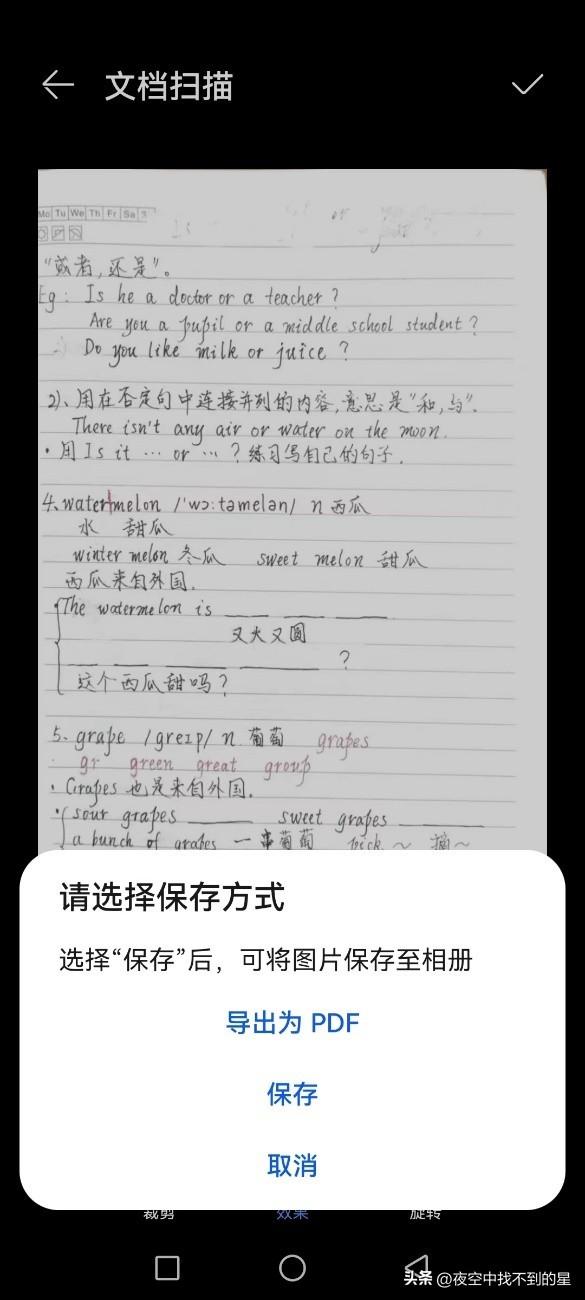 文档扫描
Mo Tu We Th Fr Sa S
or
“或者,还是”。
Eg: Is he a doctor or a teacher?
Are you a pupil or a middle school student?
Do you like milk or juice?
2)、用在否定句中连接并列的内容,意思是“和,与”.
There isn't any air or water on the moon.
·用Is it … or …?练习写自己的句子.
4、watermelon /'wɔ:təmelən/ n 西瓜
水 甜瓜
winter melon 冬瓜 sweet melon 甜瓜
西瓜来自外国.
The watermelon is ___ ___ ___
又大又圆
___ ___ ___ ___ ?
这个西瓜甜吗?
5、grape /greɪp/ n. 葡萄 grapes
gr green great group
·Grapes 也是来自外国.
·sour grapes ___ sweet grapes ___
a bunch of grapes 一串葡萄 pick ~ 摘~
请选择保存方式
选择“保存”后，可将图片保存至相册
导出为 PDF
保存
取消
裁剪 效果 旋转
头条 @夜空中找不到的星